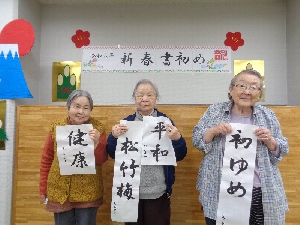 新春書初め
健康
平和
松竹梅
初ゆめ